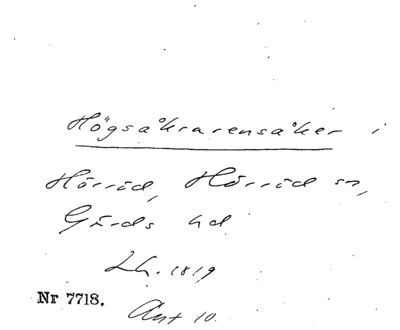 Högsåkrarensåker i
Hörröd, Hörröd sn,
Gärds hd
Lh. 1819
Nr 7718.
Akt 10.